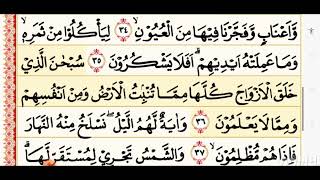 وَّاَعْنَابٍ وَّفَجَّرْنَا فِيْهَا مِنَ الْعُيُوْنِۙ ٣٤ لِيَأْكُلُوْا مِنْ ثَمَرِهٖۙ
وَمَا عَمِلَتْهُ اَيْدِيْهِمْ ۗ اَفَلَا يَشْكُرُوْنَ ٣٥ سُبْحٰنَ الَّذِيْ
خَلَقَ الْاَزْوَاجَ كُلَّهَا مِمَّا تُنْۢبِتُ الْاَرْضُ وَمِنْ اَنْفُسِهِمْ
وَمِمَّا لَا يَعْلَمُوْنَ ٣٦ وَاٰيَةٌ لَّهُمُ الَّيْلُ ۖ نَسْلَخُ مِنْهُ النَّهَارَ
فَاِذَا هُمْ مُّظْلِمُوْنَۙ ٣٧ وَالشَّمْسُ تَجْرِيْ لِمُسْتَقَرٍّ لَّهَا ۗ